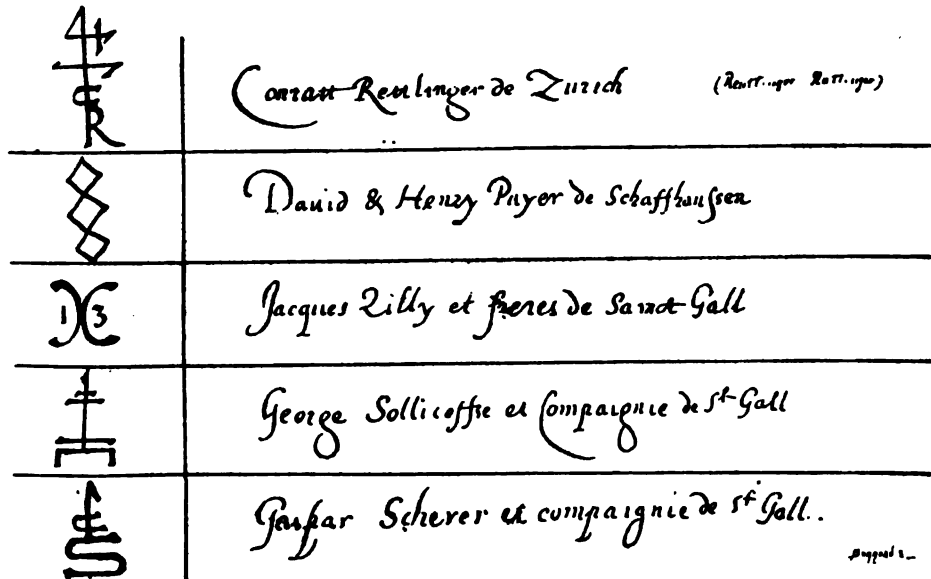 Conratt Reutlinger de Zurich
David & Henry Peyer de Schaffhaussen
1 3 Jacques Zilly et freres de Sanct Gall
George Sollicoffre et Compaignie de St Gall
Gaspar Scherer et compaignie de St Gall..